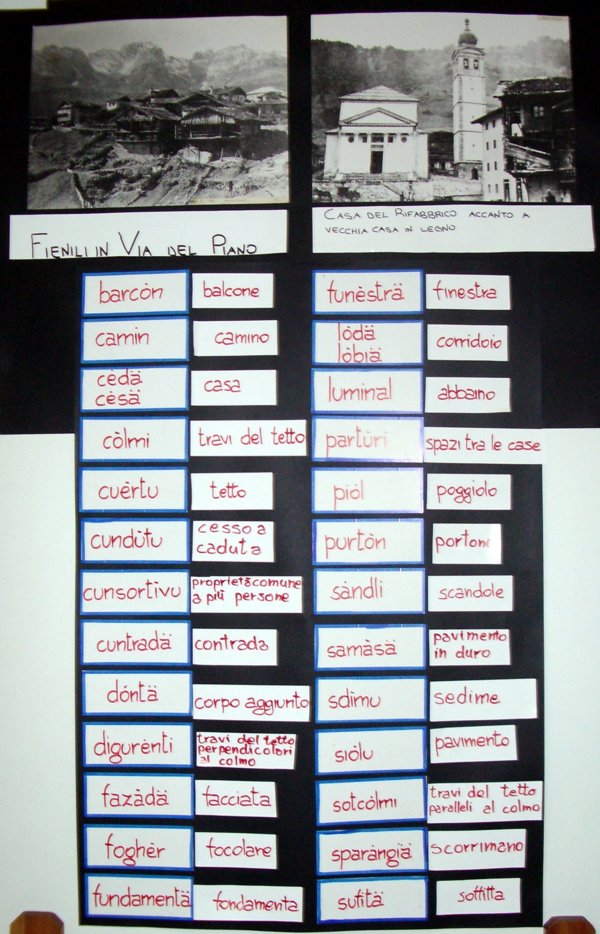 FIENILI IN VIA DEL PIANO
CASA DEL RIFABBRICO ACCANTO A
VECCHIA CASA IN LEGNO
barcòn balcone
camin camino
cèdä
cèsä
casa
còlmi travi del tetto
cuèrtu tetto
cundùtu
cesso a
caduta
cunsortivu
proprietà comune
a più persone
cuntradä contrada
dóntä corpo aggiunto
digurènti
travi del tetto
perpendicolari
al colmo
fazàdä facciata
foghèr focolare
fundamentä fondamenta
funèsträ finestra
lòdä
lòbiä
corridoio
luminal abbaino
partùri spazi tra le case
piòl poggiolo
purtòn portone
sàndli scandole
samàsä
pavimento
in duro
sdimu sedime
siòlu pavimento
sotcòlmi
travi del tetto
paralleli al colmo
sparàngiä scorrimano
sufitä soffitta